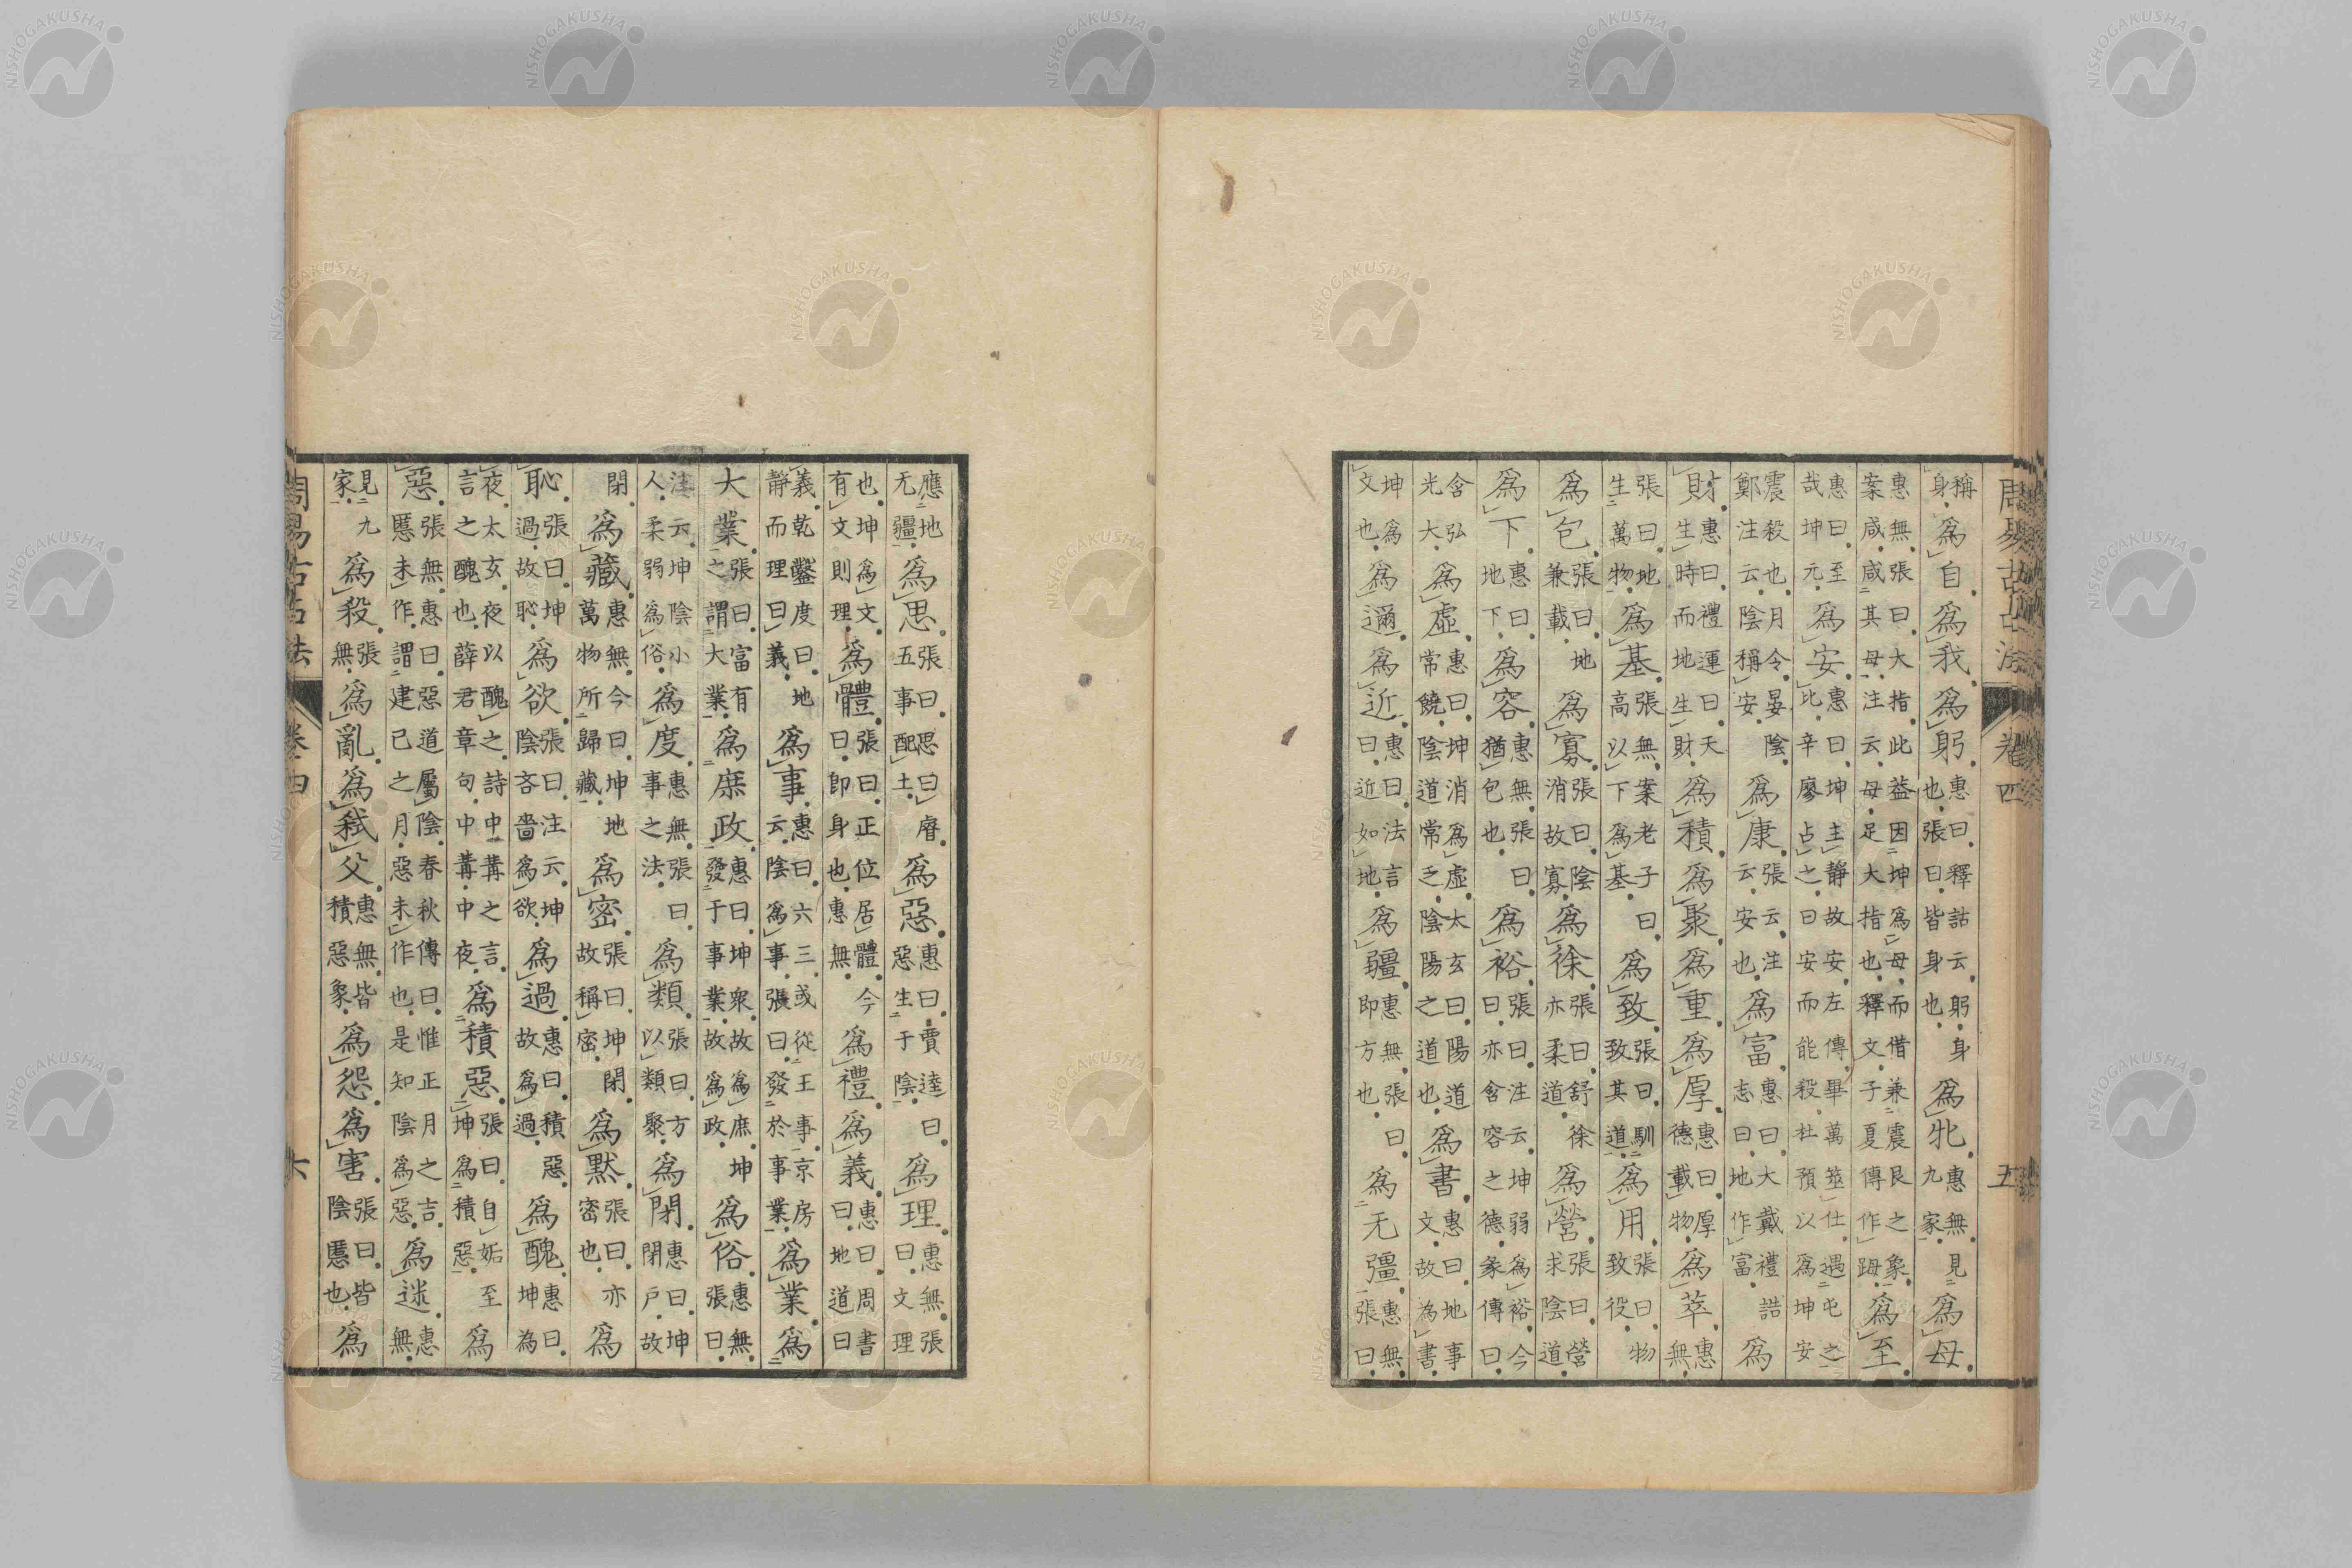 周易古占法 卷四 五
稱身為自為我為躬惠曰釋詁云躬身也張曰皆身也為牝惠無見九家為母
惠無張曰大指此益因坤為母而借兼震艮之象案咸咸其母注云母足大指也釋文子夏傳作䟢為至
惠曰至哉坤元為安惠曰坤主靜故安左傳畢萬筮仕遇屯之比辛廖占之曰安而能殺杜預以為坤安
震殺也月令晏陰鄭注云陰稱安為康張云注云安也為富惠曰大戴禮誥志曰地作富為
財惠曰禮運曰天生時而地生財為積為聚為重為厚惠曰厚德載物為萃惠無
張曰地生萬物為基張無案老子曰高以下為基為致張曰馴致其道為用張曰物致役
為包張曰地兼載為寡張曰陰消故寡為徐張曰舒徐亦柔道為營張曰營求陰道
為下惠曰地下為容惠無張曰猶包也為裕張曰注云坤弱為裕今曰亦含容之德象傳曰
含弘光大為虛惠曰坤消為虛太玄曰陽道常饒陰道常乏陰陽之道也為書惠曰地事文故為書
坤為文也為邇為近惠曰法言曰近如地為疆惠無張曰即方也為无疆惠無張曰
應地无疆為思張曰思曰睿五事配土為惡惠曰賈逵曰惡生于陰為理惠無張曰文理
也坤為文有文則理為體張曰正位居體今曰即身也惠無為禮為義惠曰周書曰地道曰
義乾鑿度曰地靜而理曰義為事惠曰六三或從王事京房云陰為事張曰發於事業為業為
大業張曰富有之謂大業為庶政惠曰坤眾故為庶坤發于事業故為政為俗惠無張曰
注云坤陰小人柔弱為俗為度惠無張曰事之法為類張曰方以類聚為閉惠曰坤閉戶故
閉為藏惠無今曰坤地萬物所歸藏為密張曰坤閉故稱密為默張曰亦密也為
恥張曰坤過故恥為欲張曰注云坤陰吝嗇為欲為過惠曰積惡故為過為醜惠曰坤為
夜太玄夜以醜之詩中冓之言言之醜也薛君章句中冓中夜為積惡張曰自姤至坤為積惡為
惡張無惠曰惡道屬陰春秋傳曰惟正月之吉慝未作謂建已之月惡未作也是知陰為惡為迷惠無
見九家為殺張無為亂為弒父惠無皆積惡象為怨為害張曰皆陰慝也為
周易古占法 卷四 六
NISHOGAKUSHA